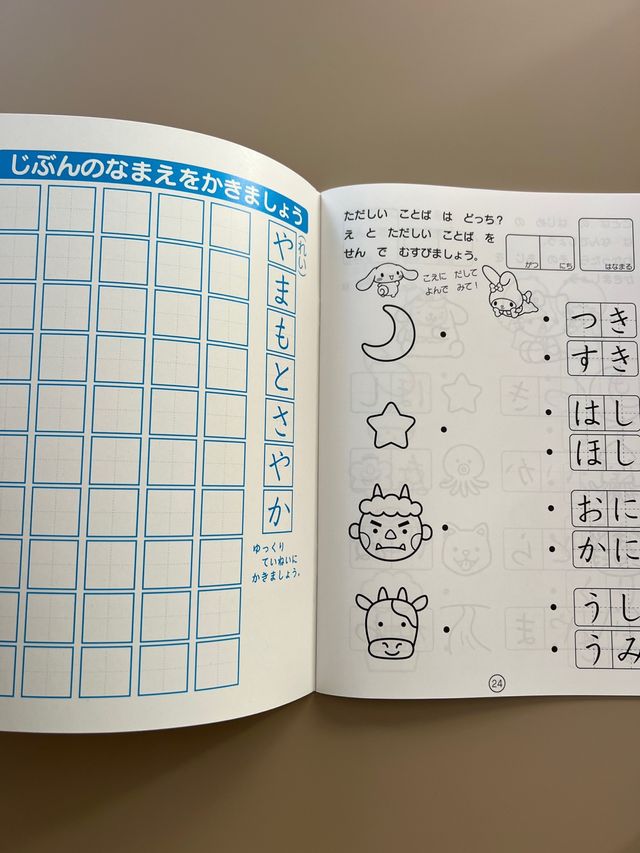 じぶんのなまえをかきましょう
(れい)
やまもとさやか
ゆっくり
ていねいに
かきましょう。
ただしい ことば は どっち?
え と ただしい ことば を
せん で むすびましょう。
がつ にち
はなまる
こえに だして
よんで みて!
つき
すき
はし
ほし
おに
かに
うし
うみ
24